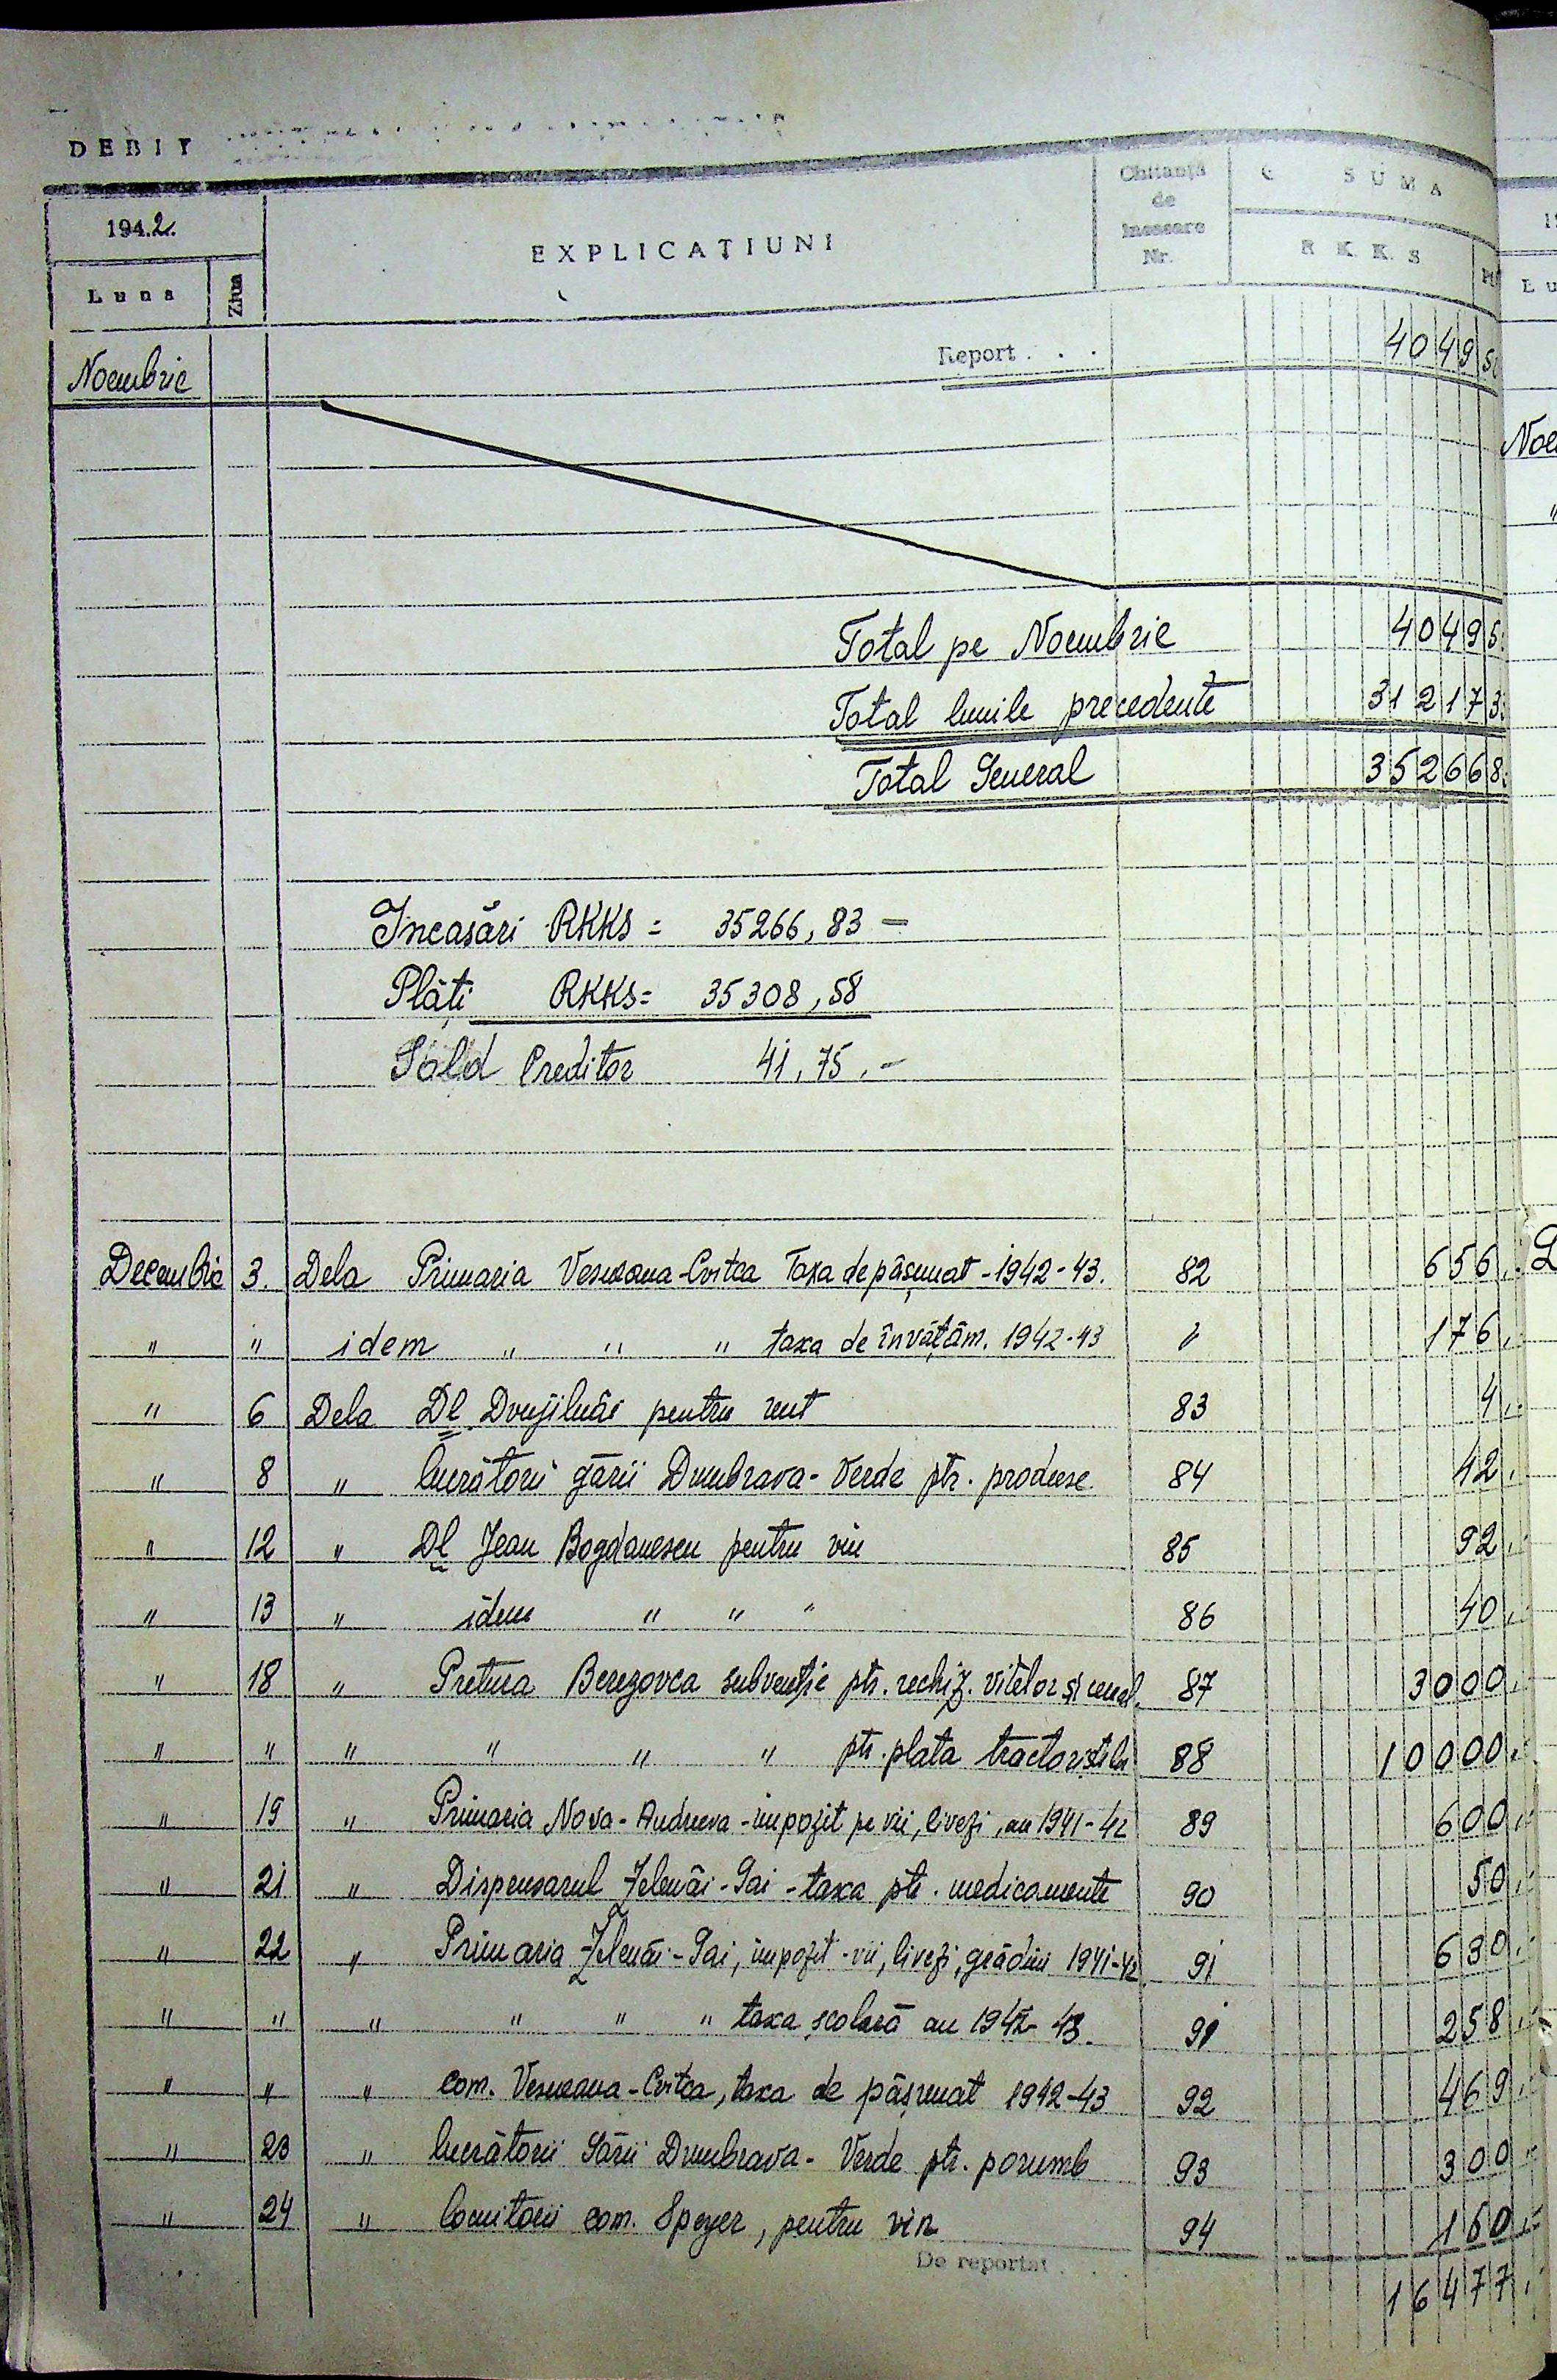 DEBIT
194.2.
Luna Ziua
EXPLICAȚIUNI
Chitanță de Incasare Nr.
SUMA
R K K S
Noembrie Report . . . 4049 50
Total pe Noembrie 4049 5
Total lunile precedente 31 217 3
Total General 35266 8
Incasări RKKS = 35266,83 —
Plăți RKKS = 35308,58
Sold Creditor 41,75.-
Decembrie 3. Dela Primaria Veseleana-Cvitca Taxa de pășunat - 1942-43. 82 656,-
" " idem " " " taxa de învățăm. 1942-43 " 176,-
" 6 Dela Dl pentru unt 83 4,-
" 8 " lucrătorii gării Dumbrava-Verde ptr. produse 84 42,-
" 12 " Dl Jean Bogdanescu pentru vin 85 92,-
" 13 " idem " " " 86 40,-
" 18 " Pretura Berezovca subvenție ptr. rechiz. vitelor și cereal. 87 3000,-
" " " " " " ptr. plata tractoriștilor 88 10000,-
" 19 " Primaria Nova-Andreeva - impozit pe vii, livezi, an 1941-42 89 600,-
" 21 " Dispensarul Zelenâi-Gai - taxa ptr. medicamente 90 50,-
" 22 " Primaria Zelenâi-Gai, impozit - vii, livezi, grădini 1941-42 91 630,-
" " " " " " taxa școlară an 1942-43. 91 258,-
" " " com. Veseleana-Cvitca, taxa de pășunat 1942-43 92 469,-
" 23 " lucrătorii Gării Dumbrava-Verde ptr. porumb 93 300,-
" 24 " locuitorii com. Speyer, pentru vin 94 160,-
De reportat . . . 16477,-